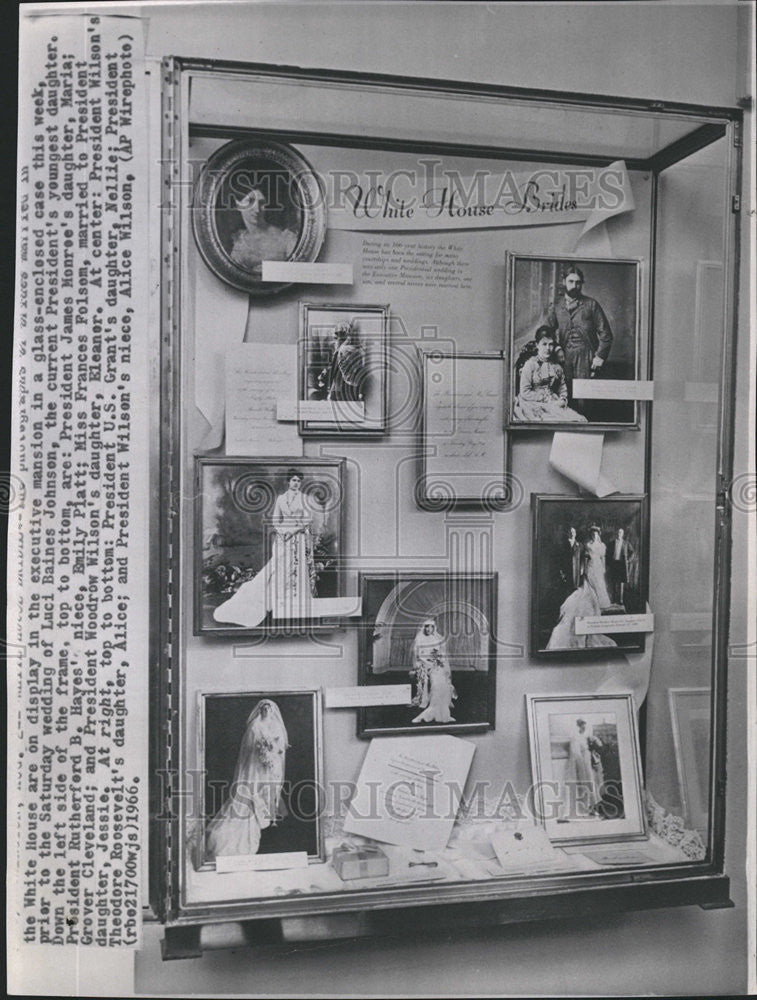 the White House are on display in the executive mansion in a glass-enclosed case this week,
prior to the Saturday wedding of Luci Baines Johnson, the current President's youngest daughter.
Down the left side of the frame, top to bottom, are: President James Monroe's daughter, Maria;
President Rutherford B. Hayes' niece, Emily Platt; Miss Frances Folsom, married to President
Grover Cleveland; and President Woodrow Wilson's daughter, Eleanor. At center: President Wilson's
daughter, Jessie. At right, top to bottom: President U.S. Grant's daughter, Nellie; President
Theodore Roosevelt's daughter, Alice; and President Wilson's niece, Alice Wilson, (AP Wirephoto)
(rbe21700wjs)1966.
White House Brides
During its 166 year history the White
House has been the setting for many
courtships and weddings. Although there
was only one Presidential wedding in
the Executive Mansion,
HISTORIC IMAGES
HISTORIC IMAGES